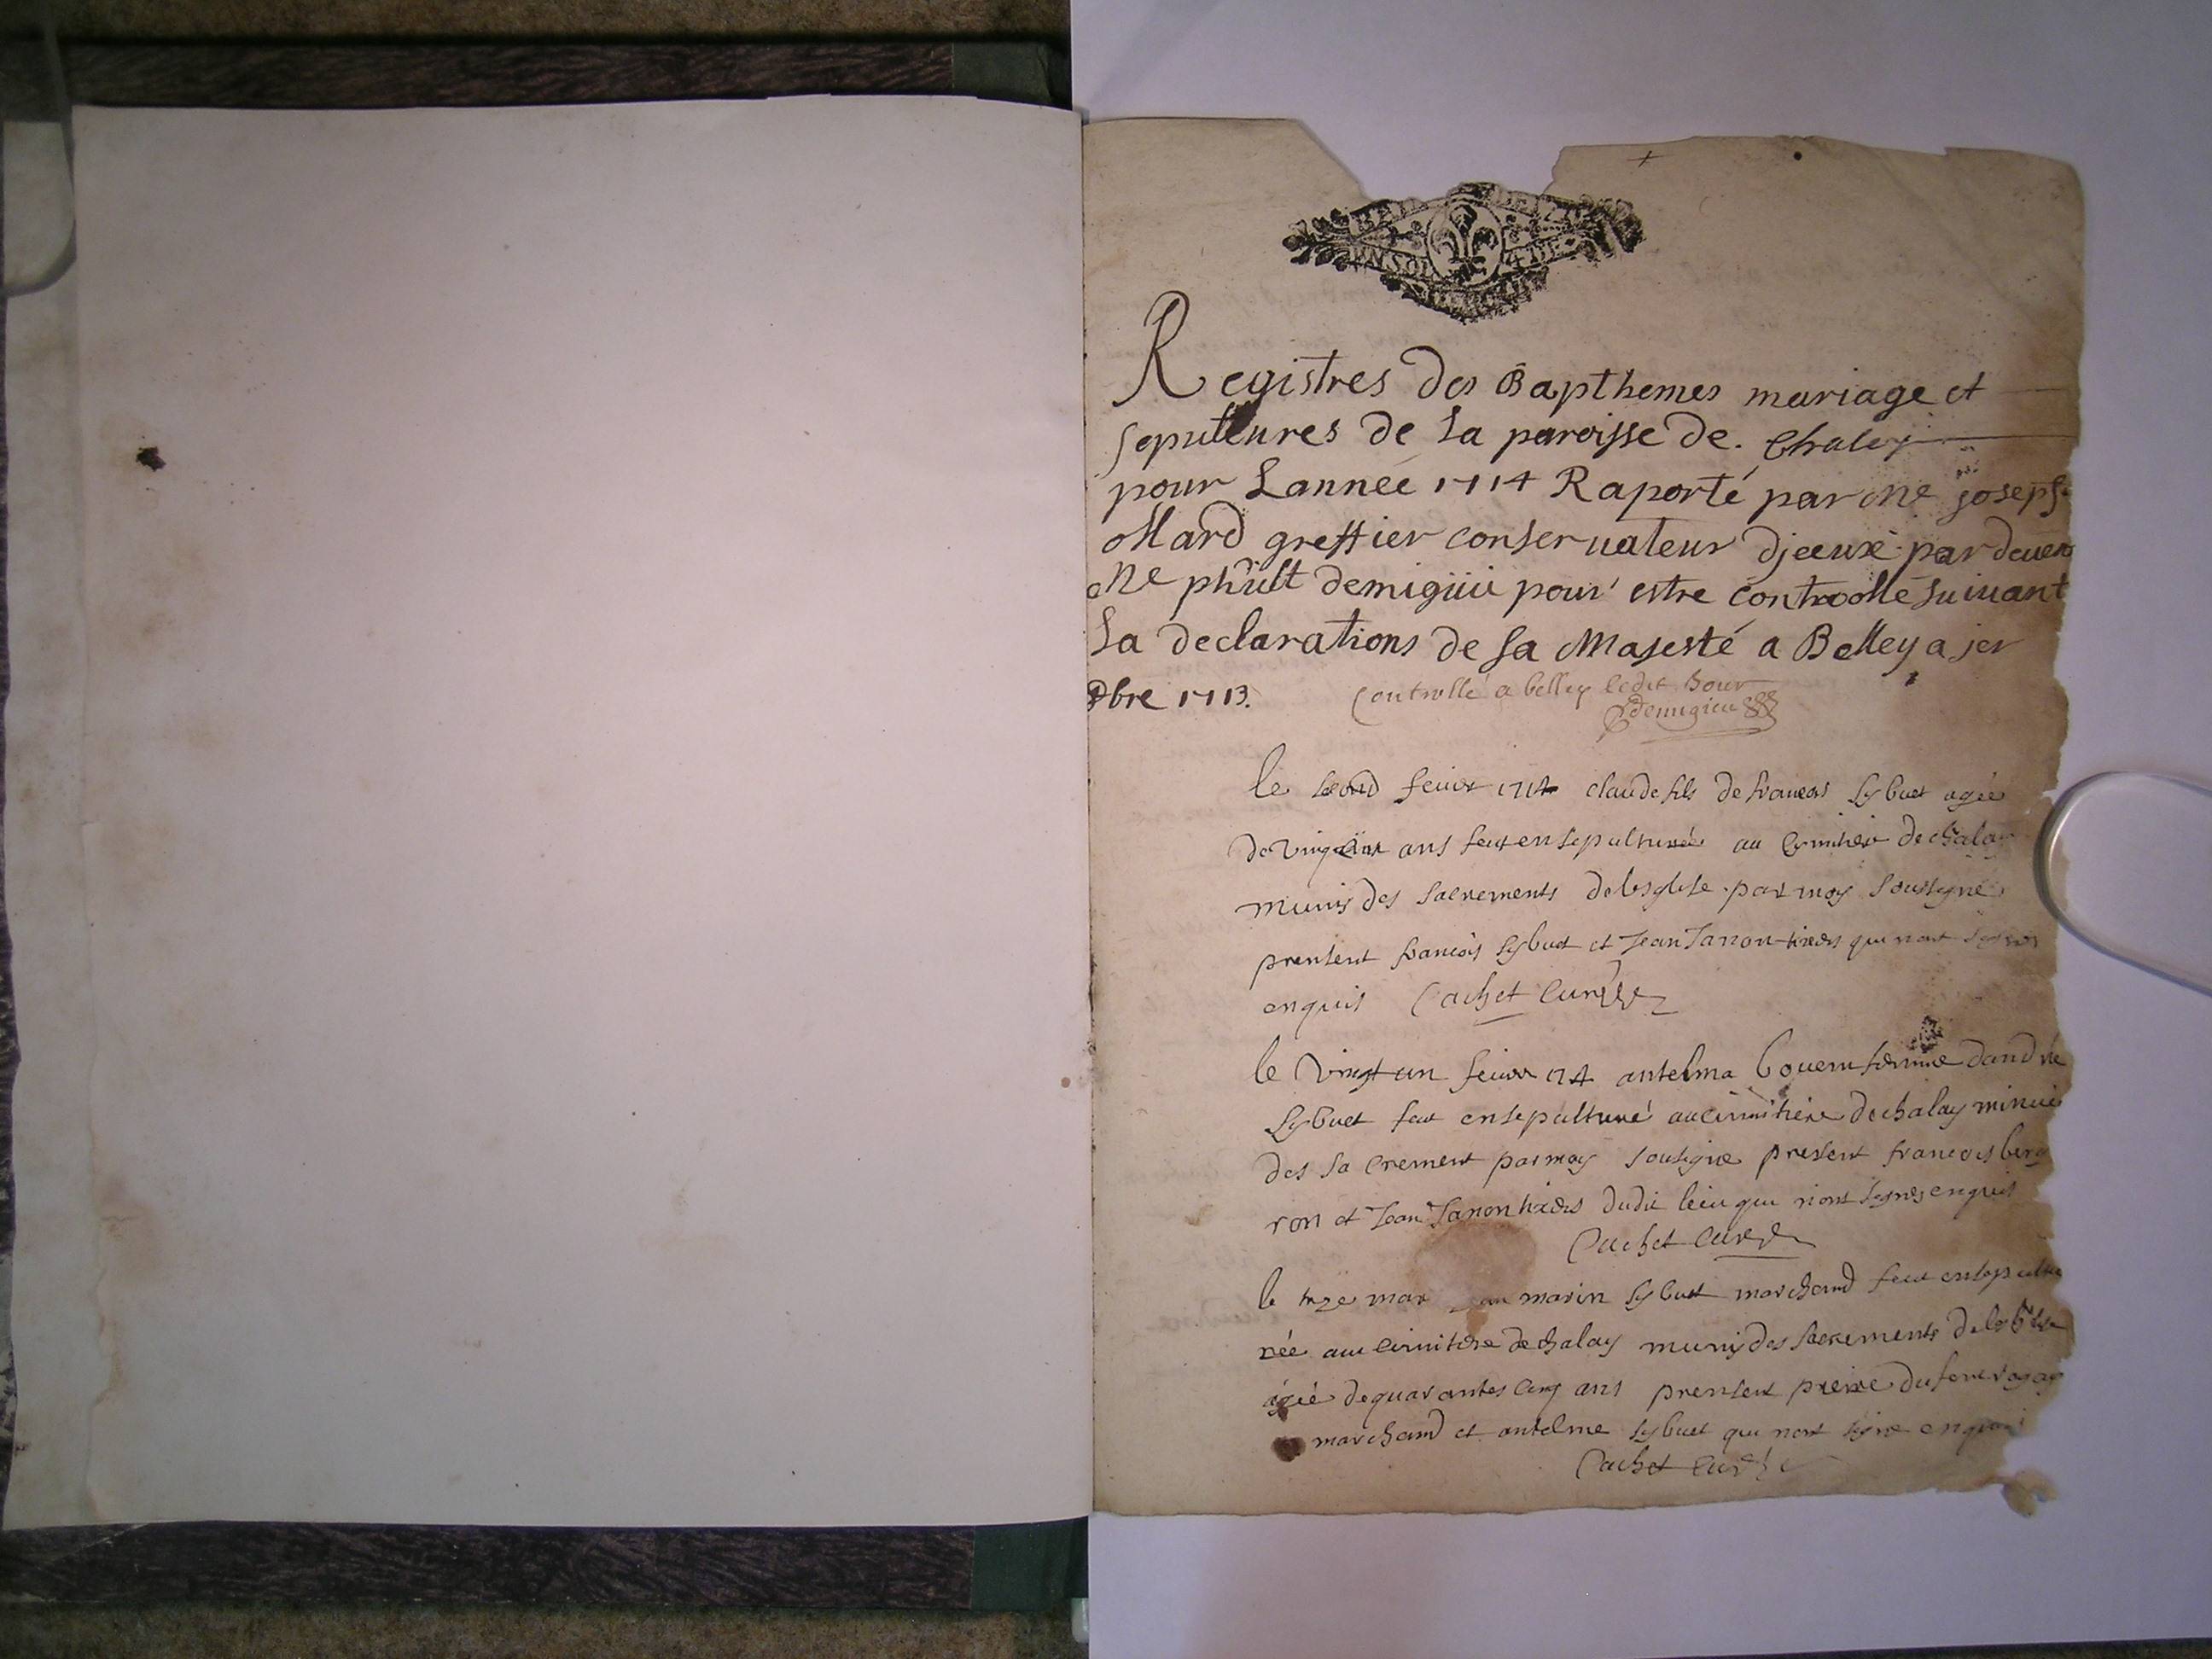 Registres des Bapthemes mariage et
sepultures de la paroisse de. Chaley
pour Lannée 1714 Raporté par me joseph
ollard greffier conseruateur djceux par deuen
me demigiüü pour estre controollé suiuant
La declarations de sa Majesté a Belley a jer
1713.
Controllé a belley ledit Jour
demigieu
le segond feuier 1714 claude fils de francois Sybuet agée
de ans feut ensepulturée au cymitiere de chalay
munis des sacrements de lesglise par moy soussigné
prensent francois Sybuet et Jean Janon qui nont signes
enquis Cachet Curé
le vingt un feuier 1714 antelma bouem femme dandre
Sybuet feut ensepulturé au cimitiere de chalay
des sacrement par moy sousigne present francois berg
ron et Jean Janon dudit leiu qui niont signes enquis
Cachet Curé
le mar marin Sybuet marchand feut ensepultu
rée au cimitere de chalay munis des sacrements de
agée de quarantes cinq ans prensent preire
marchand et antelme Sybuet qui nont signe enquis
Cachet Curé